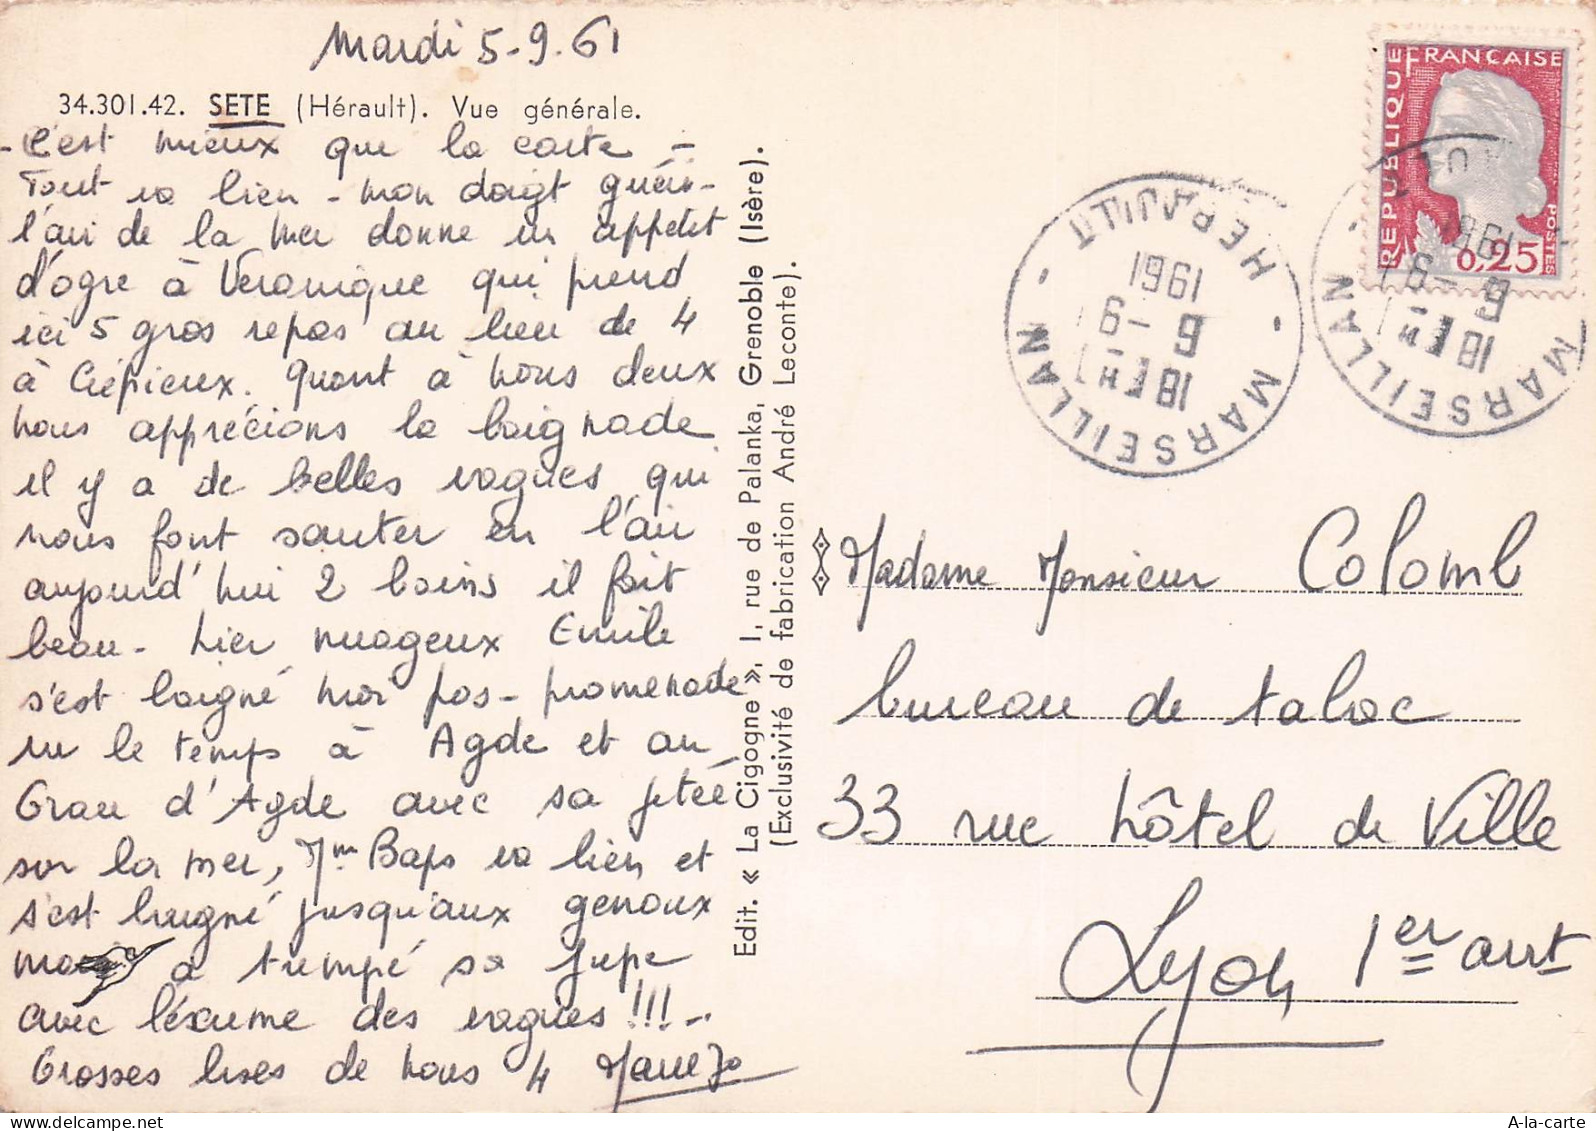 Mardi 5-9.61
34.301.42. SETE (Hérault). Vue générale.
- C'est mieux que la carte -
Tout va bien - mon doigt guéri -
l'air de la mer donne un appétit
d'ogre à Véronique qui prend
ici 5 gros repas au lieu de 4
à Crépieux. Quant à nous deux
nous apprécions la baignade
il y a de belles vagues qui
nous font sauter en l'air
aujourd'hui 2 bains il fait
beau - hier nuageux Emile
s'est baigné moi pas - promenade
vu le temps à Agde et au
Grau d'Agde avec sa jetée
sur la mer, Mme Baps va bien et
s'est baigné jusqu'aux genoux
a trempé sa jupe
avec l'écume des vagues !!! -
Grosses bises de nous 4
Edit. « La Cigogne », 1, rue de Palanka, Grenoble (Isère).
(Exclusivité de fabrication André Leconte).
REPUBLIQUE FRANÇAISE
POSTES
0,25
MARSEILLAN - HERAULT -
18H
5-9
1961
MARSEILLAN -
18H
5-9
1961
Madame Monsieur Colomb
bureau de tabac
33 rue hôtel de Ville
Lyon 1er arrt
A-la-carte